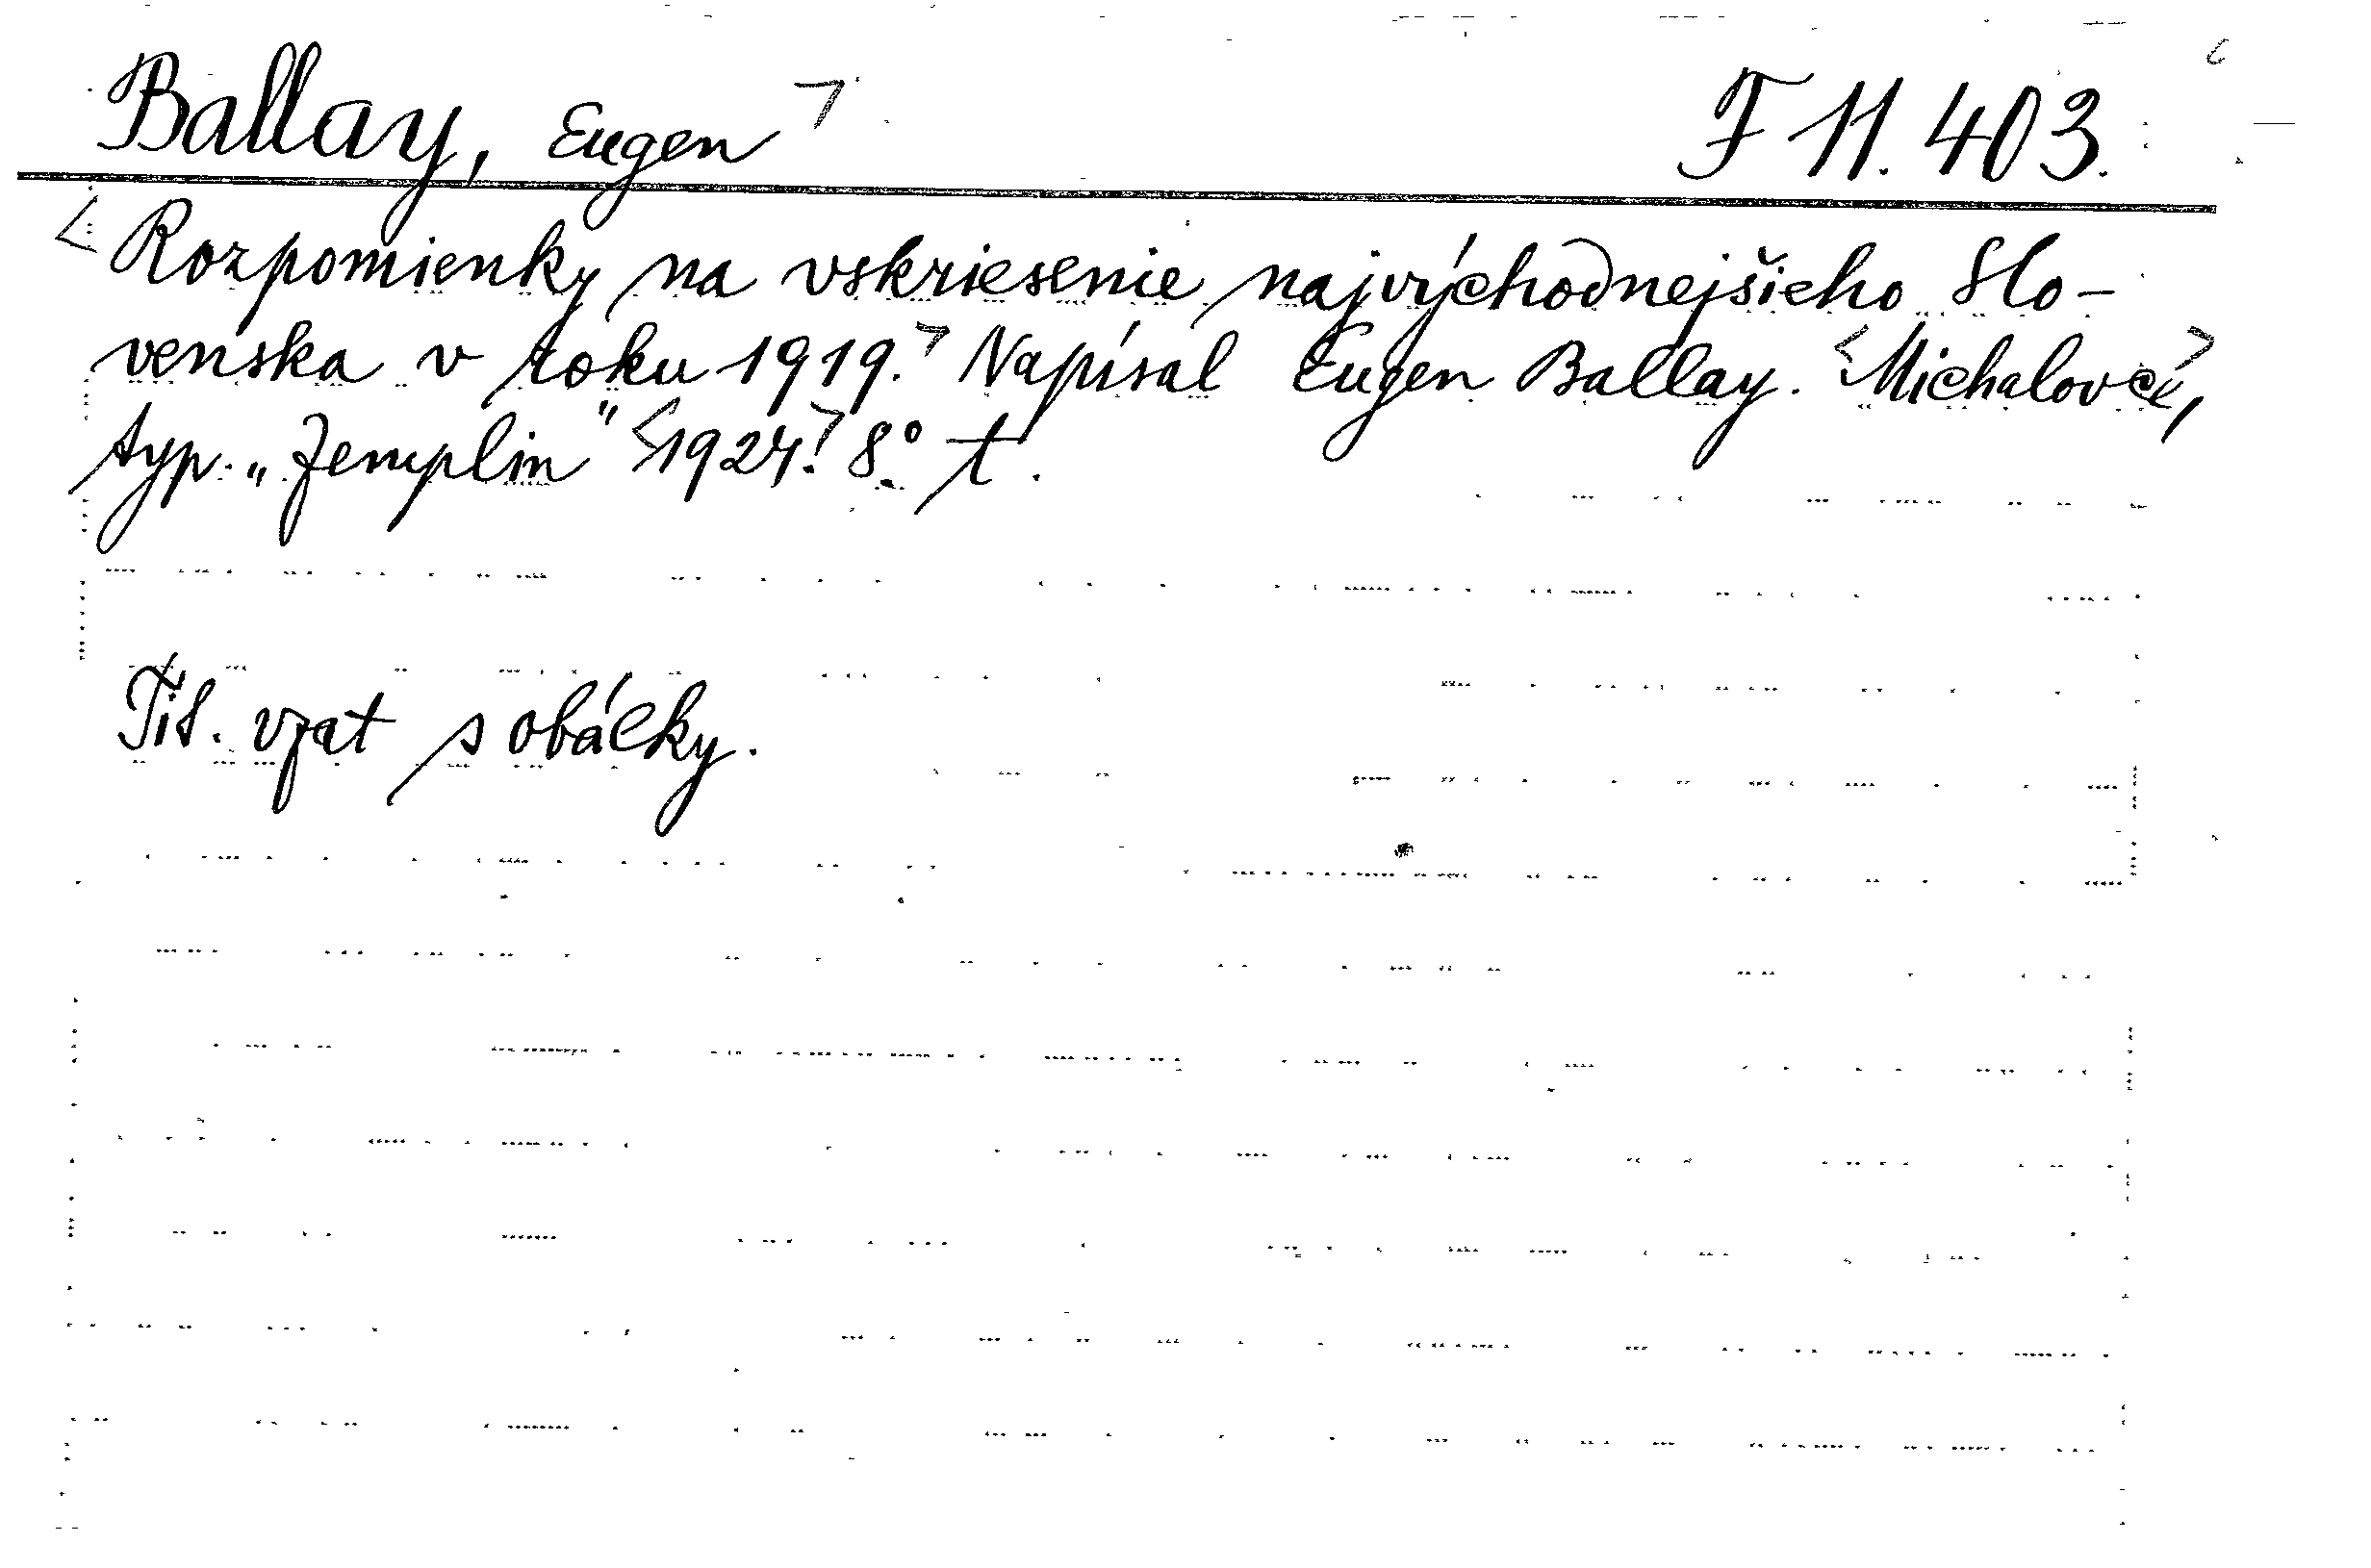 Ballay, Eugen F 11.403.
Rozpomienky na vskriesenie najvýchodnejšieho Slo-
venska v roku 1919. Napísal Eugen Ballay. Michalovce,
typ. „Zemplin" 1924. 8° t.
Tit. vzat s obálky.